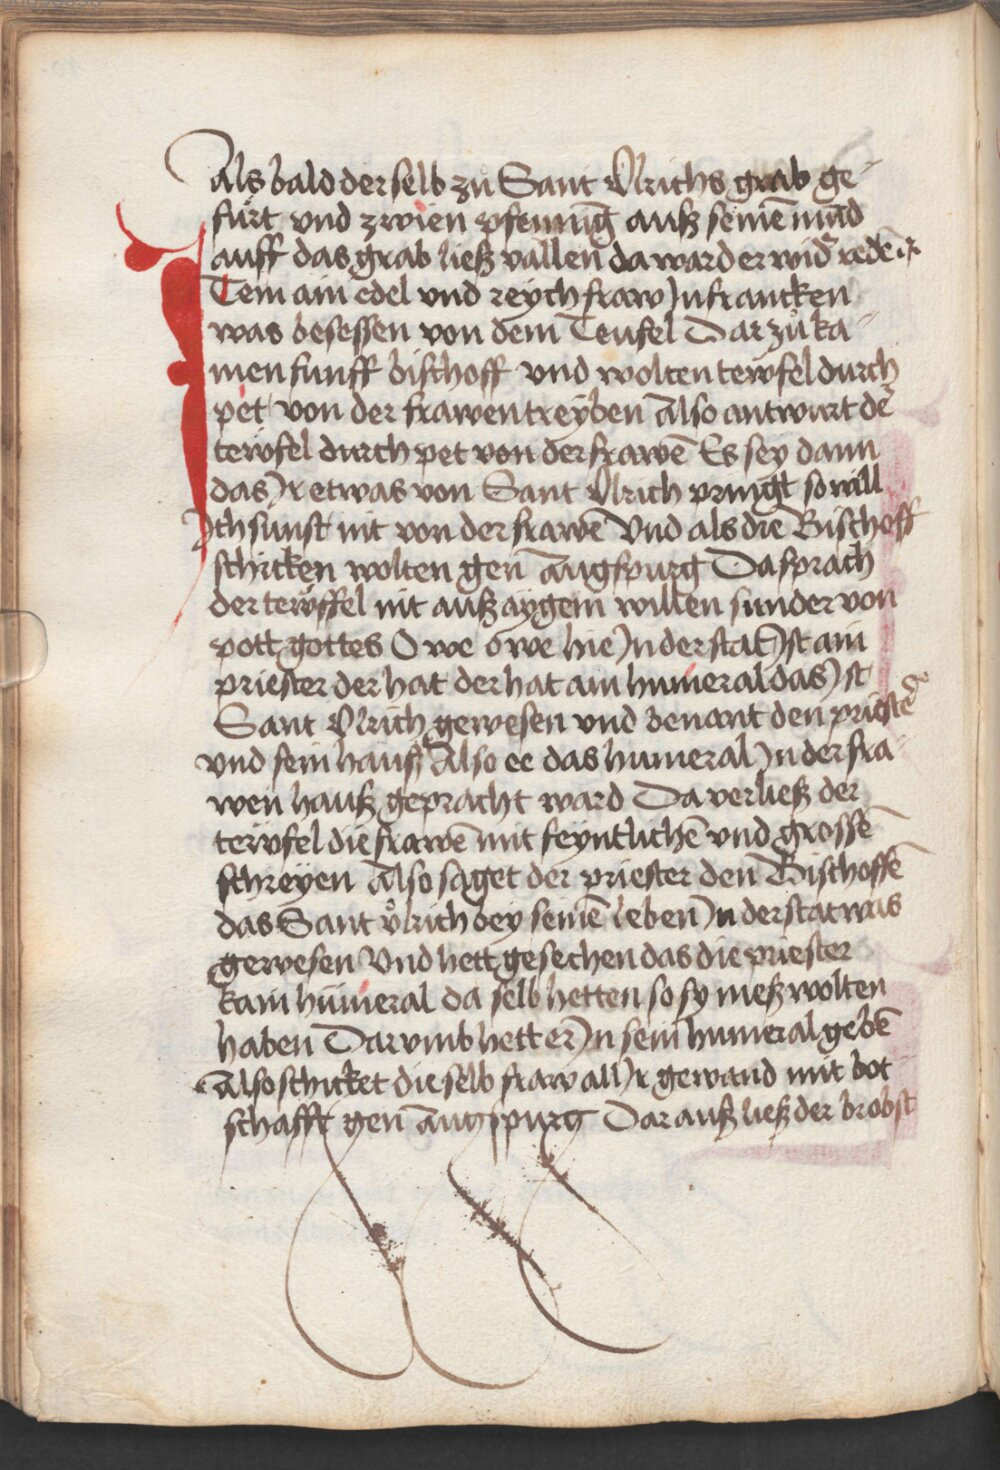 Als bald der selb zů Sant Ulrichs grab ge-
fürt und zwien pfennig̅ auß seinē mūd
auff das grab ließ vallen da ward er wid̛ redē
Item ain edel und reych fraw Jn francken
was besessen von dem Teufel Dar zů ka-
men funff bischoff und wolten tewfel durch
pet von der frawen treyben Also antwurt de̅
tewfel durch pet von der frawē Es sey dann
das Jr etwas von Sant Ulrich pringt so will
Jch sunst nit von der frawē Und als die Bischoff
schicken wolten gen̅ Augspurg Da sprach
der tewffel nit auß aygem willen sunder von
pott gottes O we o we hie Jn der stat Jst ain
priester der hat der hat ain humeral das Jst
Sant Ulrich gewesen und benant den priester
und sein hauß Also ee das humeral Jn der fra-
wen hauß gepracht ward Da verließ der
tewfel die frawē mit feyntlichē und grossē
schreyen Also saget der priester den Bischoffē
das Sant ůlrich bey seinē leben Jn der stat was
gewesen Und hett gesechen das die priester
kain humeral da selb hetten so sy meß wolten
haben Dar umb hett er Jn sein humeral gebē
Also schicket die selb fraw all Jr gewand mit bot
schafft gen̅ Augspurg Dar auß ließ der brobst